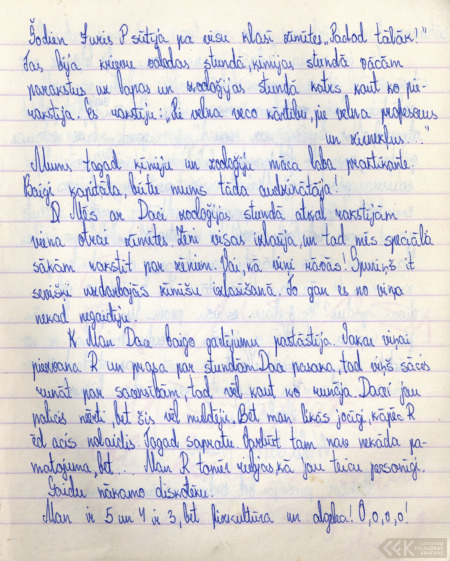 Šodien Juris P sūtīja pa visu klasi zīmītes „Padod tālāk!"
Tas bija krievu valodas stundā, ķīmijas stundā vācām
parakstus uz lapas un zooloģijas stundā katrs kaut ko pie-
rakstīja. Es rakstīju: „Pie velna veco kārtību, pie velna profesorus
un
Mums tagad ķīmiju un zooloģiju māca laba praktikante.
Baigi kapitāla, būtu mums tāda audzinātāja!
D Mēs ar Daci zooloģijas stundā atkal rakstījām
viena otrai zīmītes. Zēni visas izlasīja, un tad mēs speciāli
sākām rakstīt par zēniem. Vai, kā viņi rāvās! Spuriņš it
sevišķi uzdarbojās zīmīšu izlasīšanā. To gan es no viņa
nekad negaidīju.
K Man Dace baigo gadījumu pastāstīja. Vakar viņai
piezvana R un prasa par stundām. Dace pasaka, tad viņš sācis
runāt par sacensībām, tad vēl kaut ko runāja. Dacei jau
palicis nērti, bet šis vēl muldēja. Bet man likās jocīgi, kāpēc R
ēd acis nolaidis. Tagad sapratu. Varbūt tam nav nekāda pa-
matojuma, bet... Man R tomēr riebjas, kā jau teicu personīgi.
Gaidu nākamo diskotēku.
Man ir 5 un 4 ir 3, bet fizkultūra un algebra! O, o, o, o!
LATVIEŠU FOLKLORAS KRĀTUVE